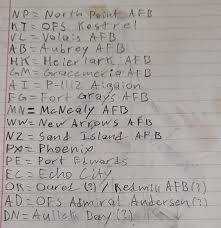 NP = North Point AFB
KT = OFS Kestrel
VL = Valais AFB
AB = Aubrey AFB
HK = Heierlark AFB
GM = Gracemeria AFB
AI = P-1112 Aigaion
FG = Fort Grays AFB
MN = McNealy AFB
WW = New Arrows AFB
NZ = Sand Island AFB
PX = Phoenix
PE = Port Edwards
EC = Echo City
OR = Oured (?) / Redmill AFB (?)
AD = OFS Admiral Andersen (?)
DN = Day (?)